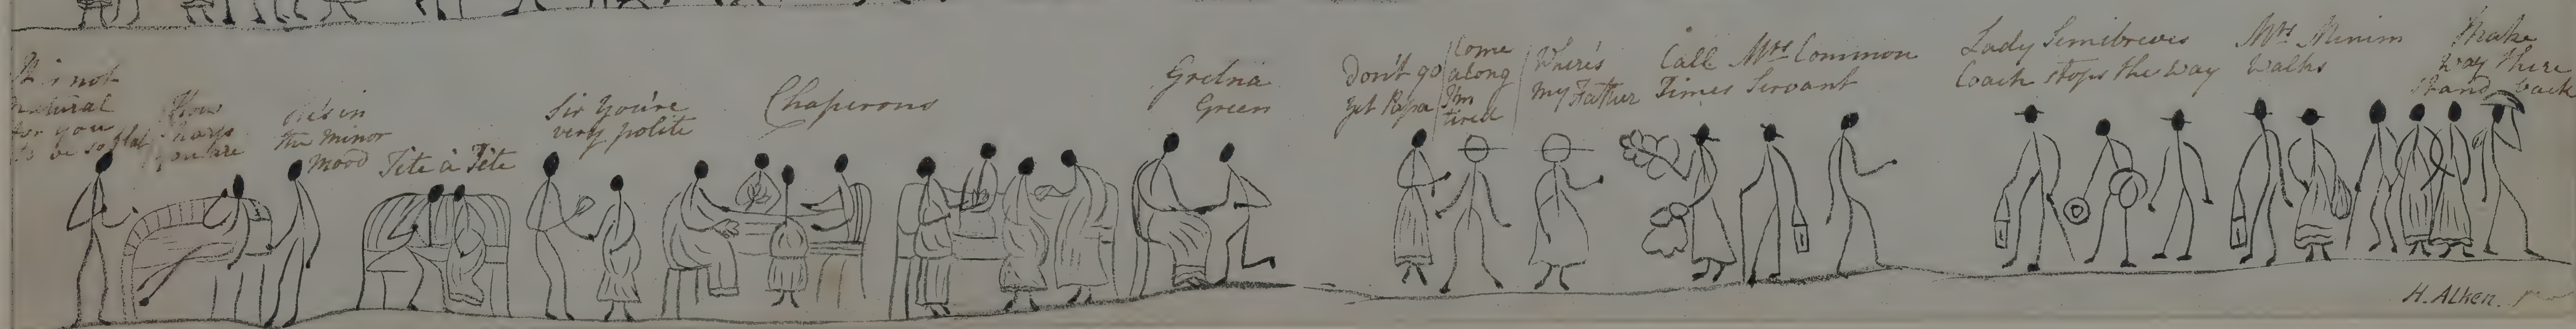 It is not
natural
for you
to be so flat
How
sharp
you are
She's in
the minor
mood
Tête à Tête
Sir You're
very polite
Chaperons
Gretna
Green
Don't go
yet Papa
Come
along
I'm
tired
Where's
My Father
Call Mrs Common
Times Servant
Lady Semibreves
Coach stops the way
Mrs Minim
Walks
Make
way there
Stand back
H. Alken.